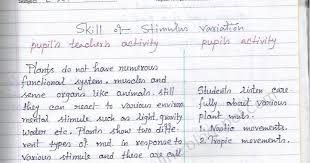 Skill of Stimulus Variation
pupil's teacher's activity
pupils activity
Plants do not have numerous
functional system, muscles and
sense organs like animals. still
they can react to various environ
mental stimuli such as light, gravity
water etc. Plants show two diffe
rent types of mvt in response to
various stimuli and these are call
Students listen care
fully about various
plant mvts.
1. Nastic movements.
2. Tropic movements.